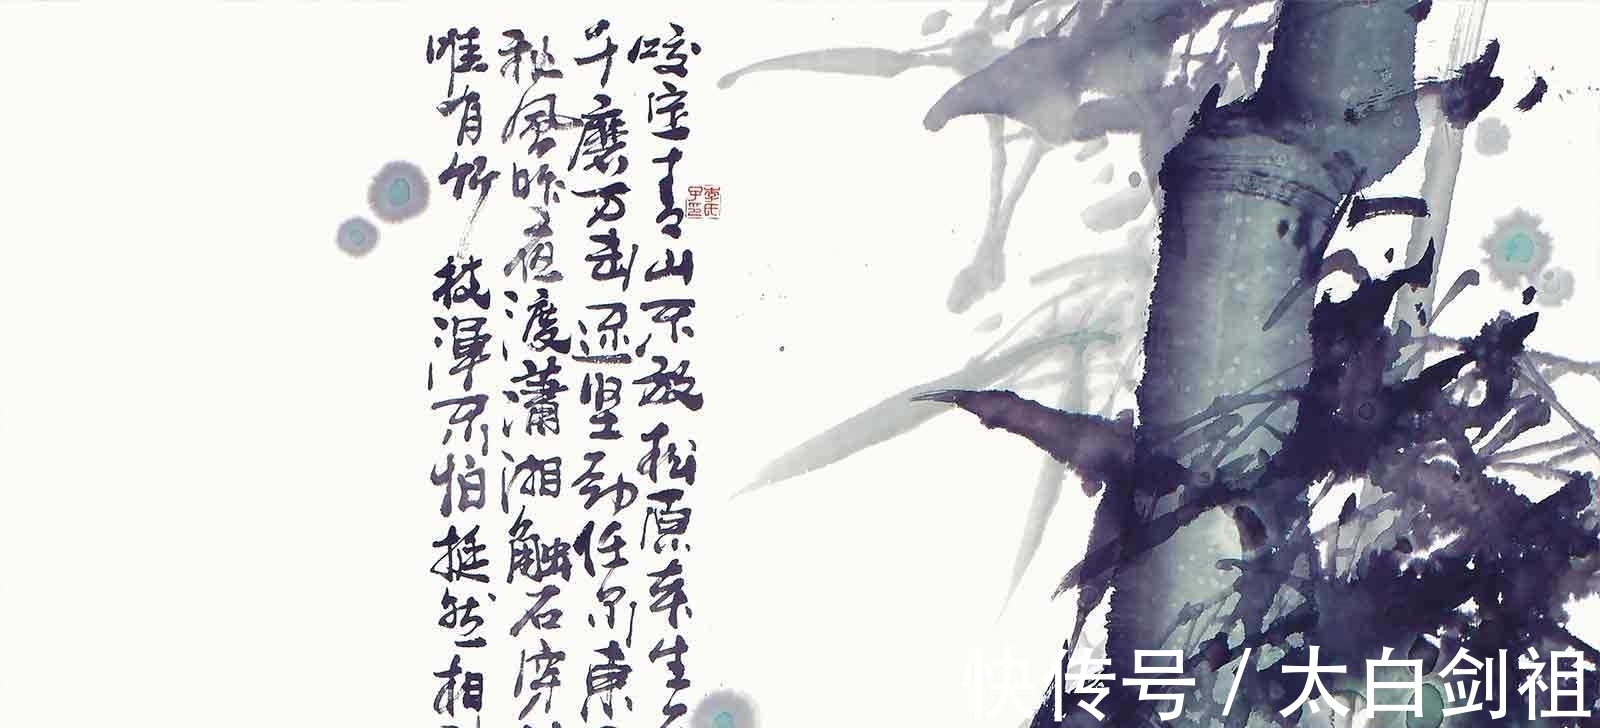 咬定青山不放松原来生
千磨万击还坚劲任尔東
秋風昨夜渡瀟湘触石穿
唯有竹枝渾不怕挺然相
快传号 / 太白剑祖